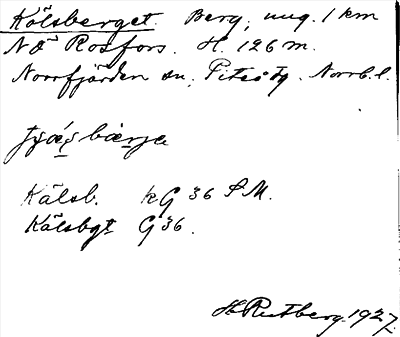 Kälsberget. Berg, ung. 1 km
NÖ Rosfors. H. 126 m.
Norrfjärden sn, Piteå tg. Norrb. l.
Kälsb. kG 36 S.M.
Kälsbgt G36.
H. Rutberg. 1927.